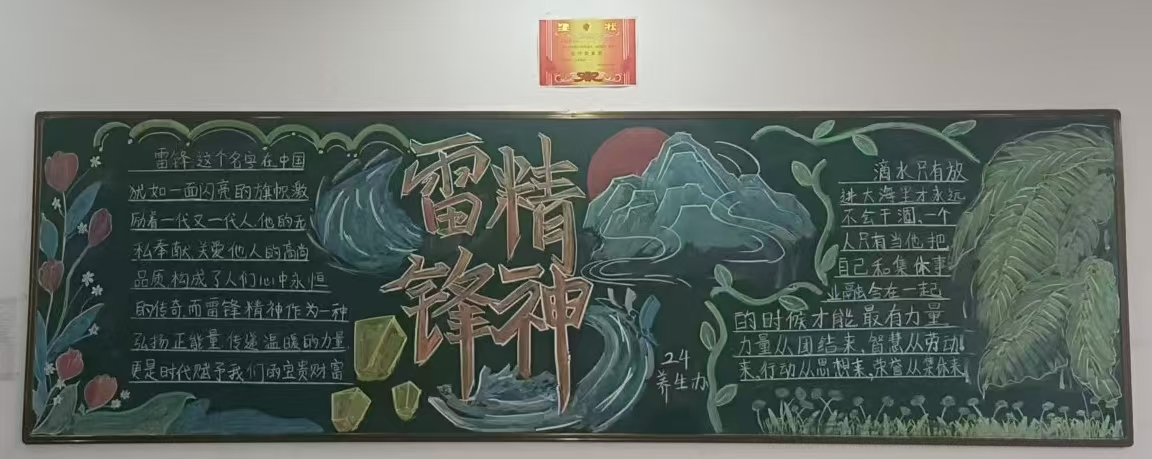 雷锋这个名字在中国
犹如一面闪亮的旗帜激
励着一代又一代人.他的无
私奉献.关爱他人的高尚
品质构成了人们心中永恒
的传奇.而雷锋精神作为一种
弘扬正能量.传递温暖的力量
更是时代赋予我们的宝贵财富
雷锋
精神
24
养生办
滴水只有放
进大海里才永远
不会干涸.一个
人只有当他把
自己和集体事
业融合在一起
的时候才能最有力量
力量从团结来.智慧从劳动
来.行动从思想来.荣誉从集体来